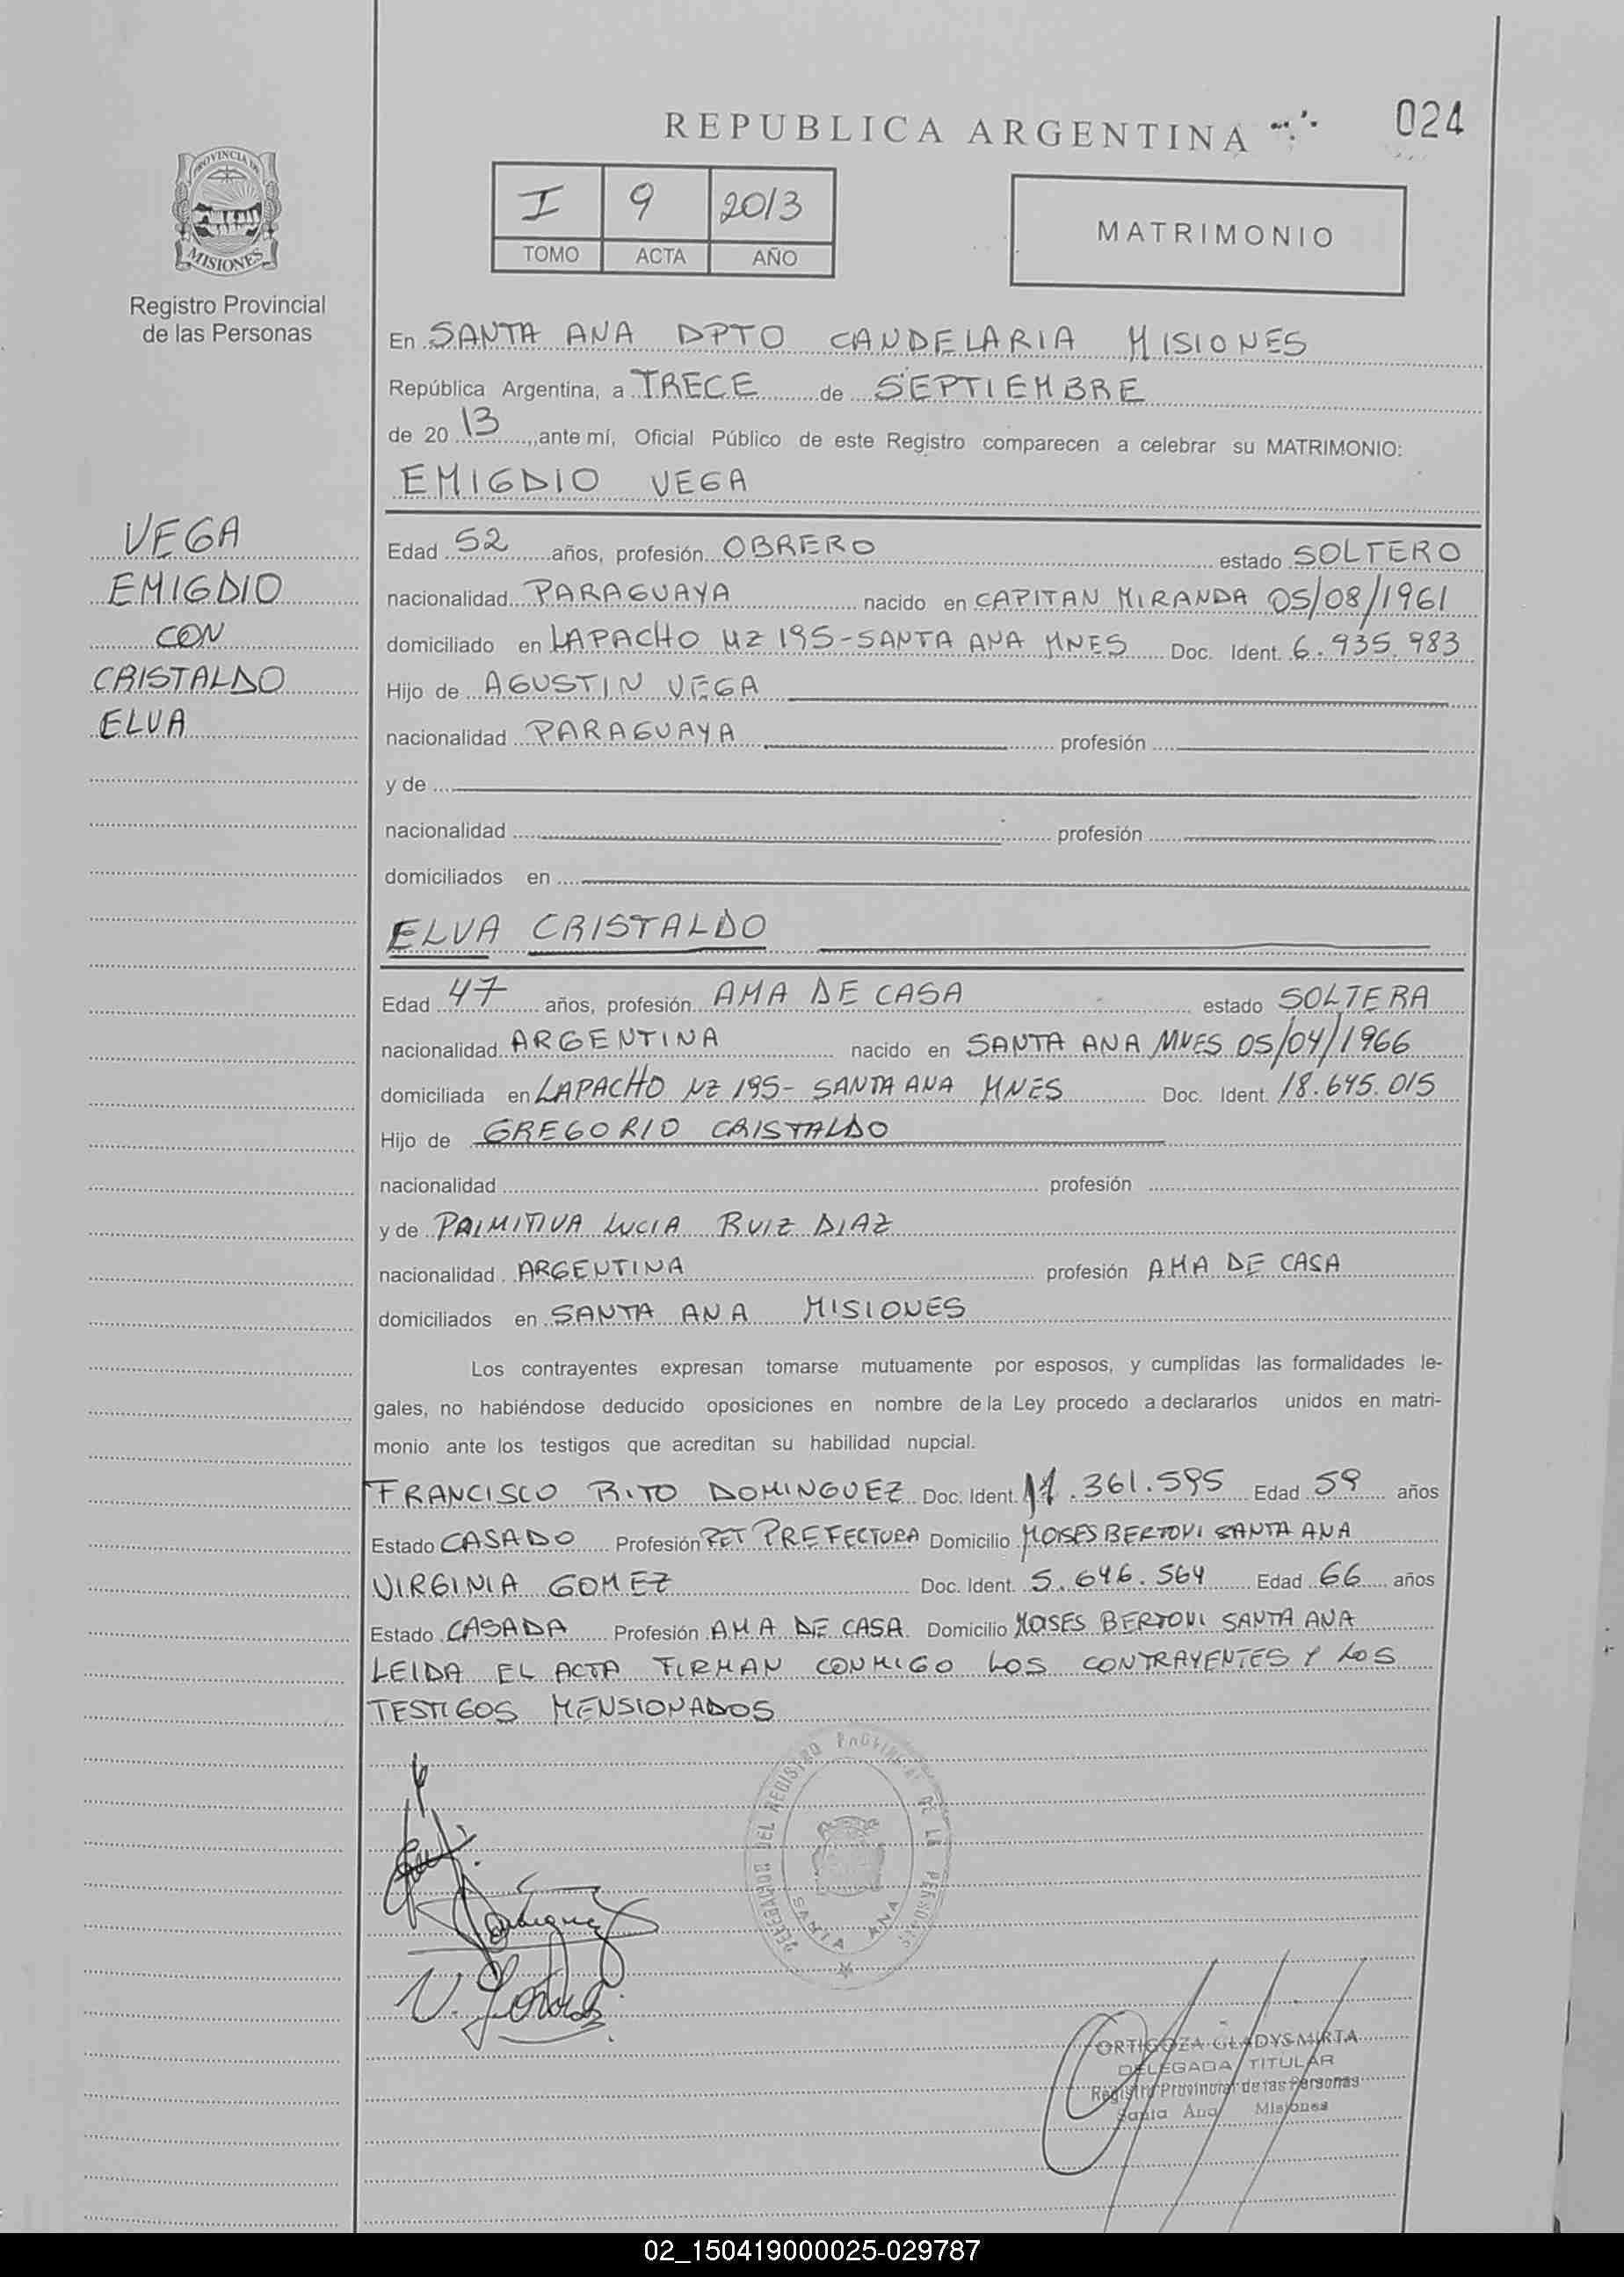 REPUBLICA ARGENTINA
024
PROVINCIA DE
MISIONES
Registro Provincial
de las Personas
I 9 2013
TOMO ACTA AÑO
MATRIMONIO
En SANTA ANA DPTO CANDELARIA MISIONES
República Argentina, a TRECE de SEPTIEMBRE
de 20 13, ante mí, Oficial Público de este Registro comparecen a celebrar su MATRIMONIO:
EMIGDIO VEGA
VEGA
EMIGDIO
CON
CRISTALDO
ELVA
Edad 52 años, profesión OBRERO estado SOLTERO
nacionalidad PARAGUAYA nacido en CAPITAN MIRANDA 05/08/1961
domiciliado en LAPACHO MZ 195-SANTA ANA MNES Doc. Ident. 6.935.983
Hijo de AGUSTIN VEGA
nacionalidad PARAGUAYA profesión
y de
nacionalidad profesión
domiciliados en
ELVA CRISTALDO
Edad 47 años, profesión AMA DE CASA estado SOLTERA
nacionalidad ARGENTINA nacido en SANTA ANA MNES 05/04/1966
domiciliada en LAPACHO MZ 195- SANTA ANA MNES Doc. Ident. 18.645.015
Hijo de GREGORIO CRISTALDO
nacionalidad profesión
y de PRIMITIVA LUCIA RUIZ DIAZ
nacionalidad ARGENTINA profesión AMA DE CASA
domiciliados en SANTA ANA MISIONES
Los contrayentes expresan tomarse mutuamente por esposos, y cumplidas las formalidades le-
gales, no habiéndose deducido oposiciones en nombre de la Ley procedo a declararlos unidos en matri-
monio ante los testigos que acreditan su habilidad nupcial.
FRANCISCO RITO DOMINGUEZ Doc. Ident. 11.361.595 Edad 59 años
Estado CASADO Profesión RET PREFECTURA Domicilio MOISES BERTONI SANTA ANA
VIRGINIA GOMEZ Doc. Ident. 5.646.564 Edad 66 años
Estado CASADA Profesión AMA DE CASA Domicilio MOISES BERTONI SANTA ANA
LEIDA EL ACTA FIRMAN CONMIGO LOS CONTRAYENTES Y LOS
TESTIGOS MENSIONADOS
DELEGACION DEL REGISTRO PROVINCIAL DE LAS PERSONAS
SANTA ANA
ORTIGOZA GLADYS MIRTA
DELEGADA TITULAR
Registro Provincial de las Personas
Santa Ana Misiones
02_150419000025-029787